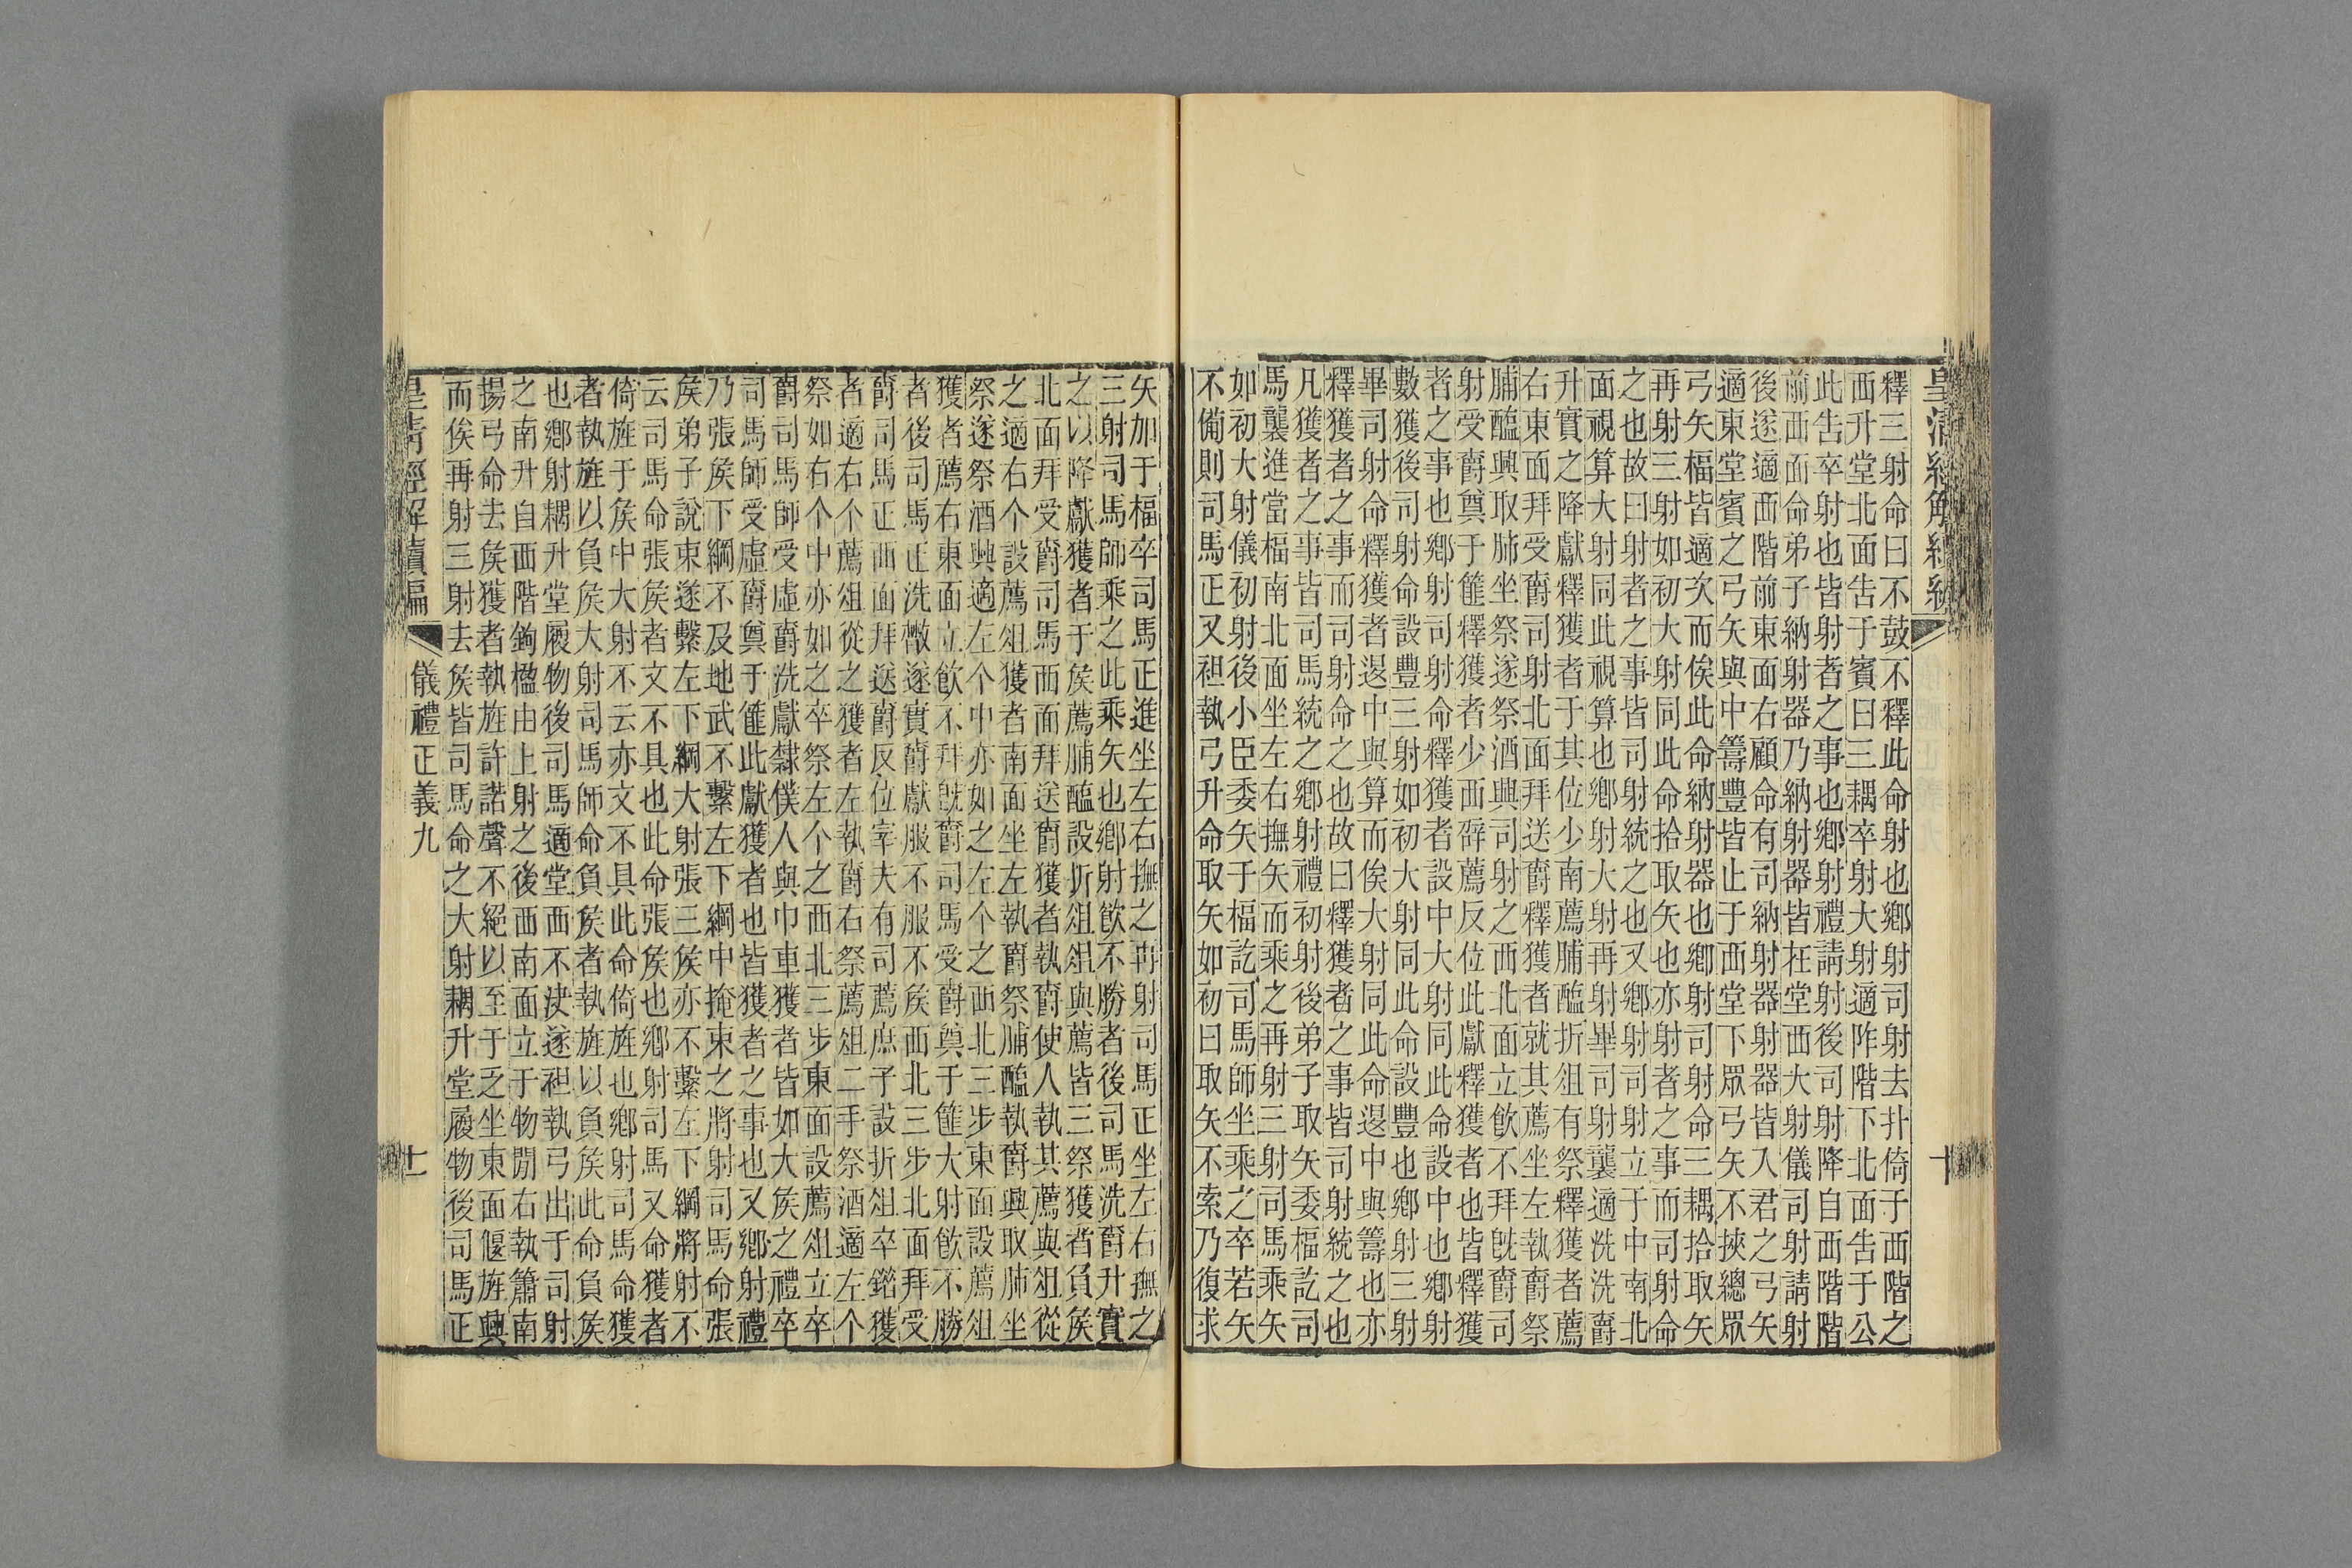 釋三射命曰不鼓不釋此命射也鄉射司射去扑倚于西階之
西升堂北面告于賓曰三耦卒射大射適阼階下北面告于公
此告卒射也皆射者之事也鄉射禮請射後司射降自西階階
前西面命弟子納射器乃納射器皆在堂西大射儀司射請射
後遂適西階前東面右顧命有司納射器射器皆入君之弓矢
適東堂賓之弓矢與中籌豐皆止于西堂下眾弓矢不挾總眾
弓矢楅皆適次而俟此命納射器也鄉射司射命三耦拾取矢
再射三射如初大射同此命拾取矢也亦射者之事而司射命
之也故曰射者之事皆司射統之也又鄉射司射立于中南北
面視算大射同此視算也鄉射大射再射畢司射襲適洗洗爵
升實之降獻釋獲者于其位少南薦脯醢折俎有祭釋獲者薦
右東面拜受爵司射北面拜送爵釋獲者就其薦坐左執爵祭
脯醢興取肺坐祭遂祭酒興司射之西北面立飲不拜既爵司
射受爵奠于篚釋獲者少西辟薦反位此獻釋獲者也皆釋獲
者之事也鄉射司射命釋獲者設中大射同此命設中也鄉射
數獲後司射命設豐三射如初大射同此命設豐也鄉射三射
畢司射命釋獲者退中與算而俟大射同此命退中與籌也亦
釋獲者之事而司射命之也故曰釋獲者之事皆司射統之也
凡獲者之事皆司馬統之鄉射禮初射後弟子取矢委楅訖司
馬襲進當楅南北面坐左右撫矢而乘之再射三射司馬乘矢
如初大射儀初射後小臣委矢于楅訖司馬師坐乘之卒若矢
不備則司馬正又袒執弓升命取矢如初曰取矢不索乃復求
皇清經解續編
十
矢加于楅卒司馬正進坐左右撫之再射司馬正坐左右撫之
三射司馬師乘之此乘矢也鄉射飲不勝者後司馬洗爵升實
之以降獻獲者于侯薦脯醢設折俎俎與薦皆三祭獲者負侯
北面拜受爵司馬西面拜送爵獲者執爵使人執其薦與俎從
之適右个設薦俎獲者南面坐左執爵祭脯醢執爵興取肺坐
祭遂祭酒興適左个中亦如之左个之西北三步東面設薦俎
獲者薦右東面立飲不拜既爵司馬受爵奠于篚大射飲不勝
者後司馬正洗散遂實爵獻服不服不侯西北三步北面拜受
爵司馬正西面拜送爵反位宰夫有司薦庶子設折俎卒錯獲
者適右个薦俎從之獲者左執爵右祭薦俎二手祭酒適左个
祭如右个中亦如之卒祭左个之西北三步東面設薦俎立卒
爵司馬師受虛爵洗獻隸僕人與巾車獲者皆如大侯之禮卒
司馬師受虛爵奠于篚此獻獲者也皆獲者之事也又鄉射禮
乃張侯下綱不及地武不繫左下綱中掩束之將射司馬命張
侯弟子說束遂繫左下綱大射張三侯亦不繫左下綱將射不
云司馬命張侯者文不具也此命張侯也鄉射司馬又命獲者
倚旌于侯中大射不云亦文不具此命倚旌也鄉射司馬命獲
者執旌以負侯大射司馬師命負侯者執旌以負侯此命負侯
也鄉射耦升堂履物後司馬適堂西不決遂袒執弓出于司射
之南升自西階鉤楹由上射之後西南面立于物閒右執簫南
揚弓命去侯獲者執旌許諾聲不絕以至于乏坐東面偃旌興
而俟再射三射去侯皆司馬命之大射耦升堂履物後司馬正
皇清經解續編
儀禮正義九
十一